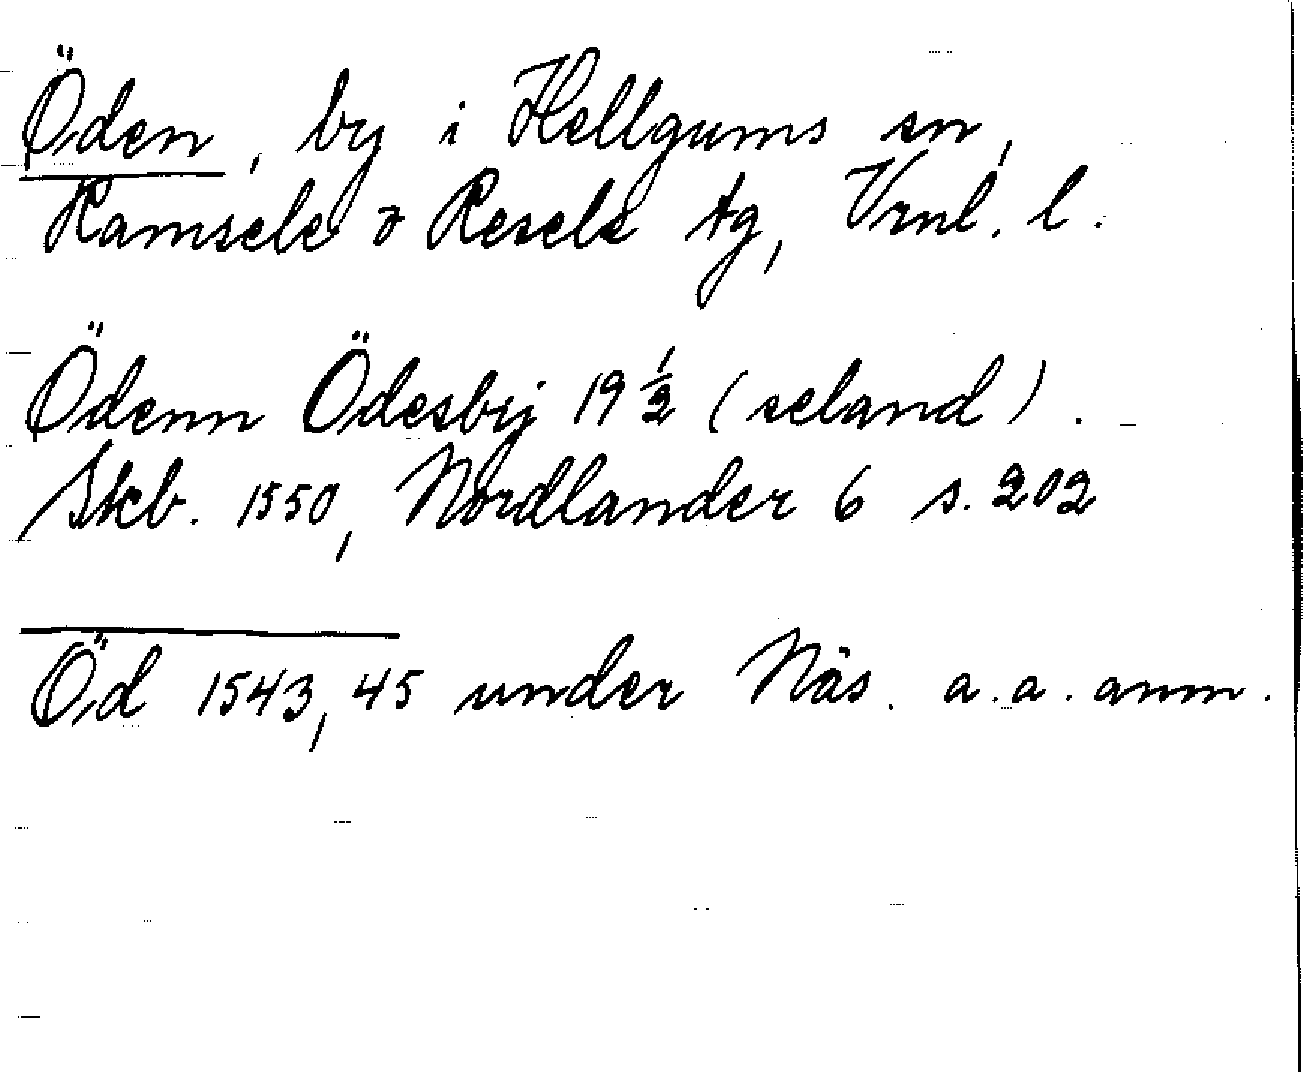 Öden, by i Hellgums sn,
Ramsele o Resele tg, Vrnl. l.
Ödenn Ödesbÿ 19 ½ (seland).
Skb. 1550, Nordlander 6 s. 202
Öd 1543, 45 under Näs. a. a. anm.